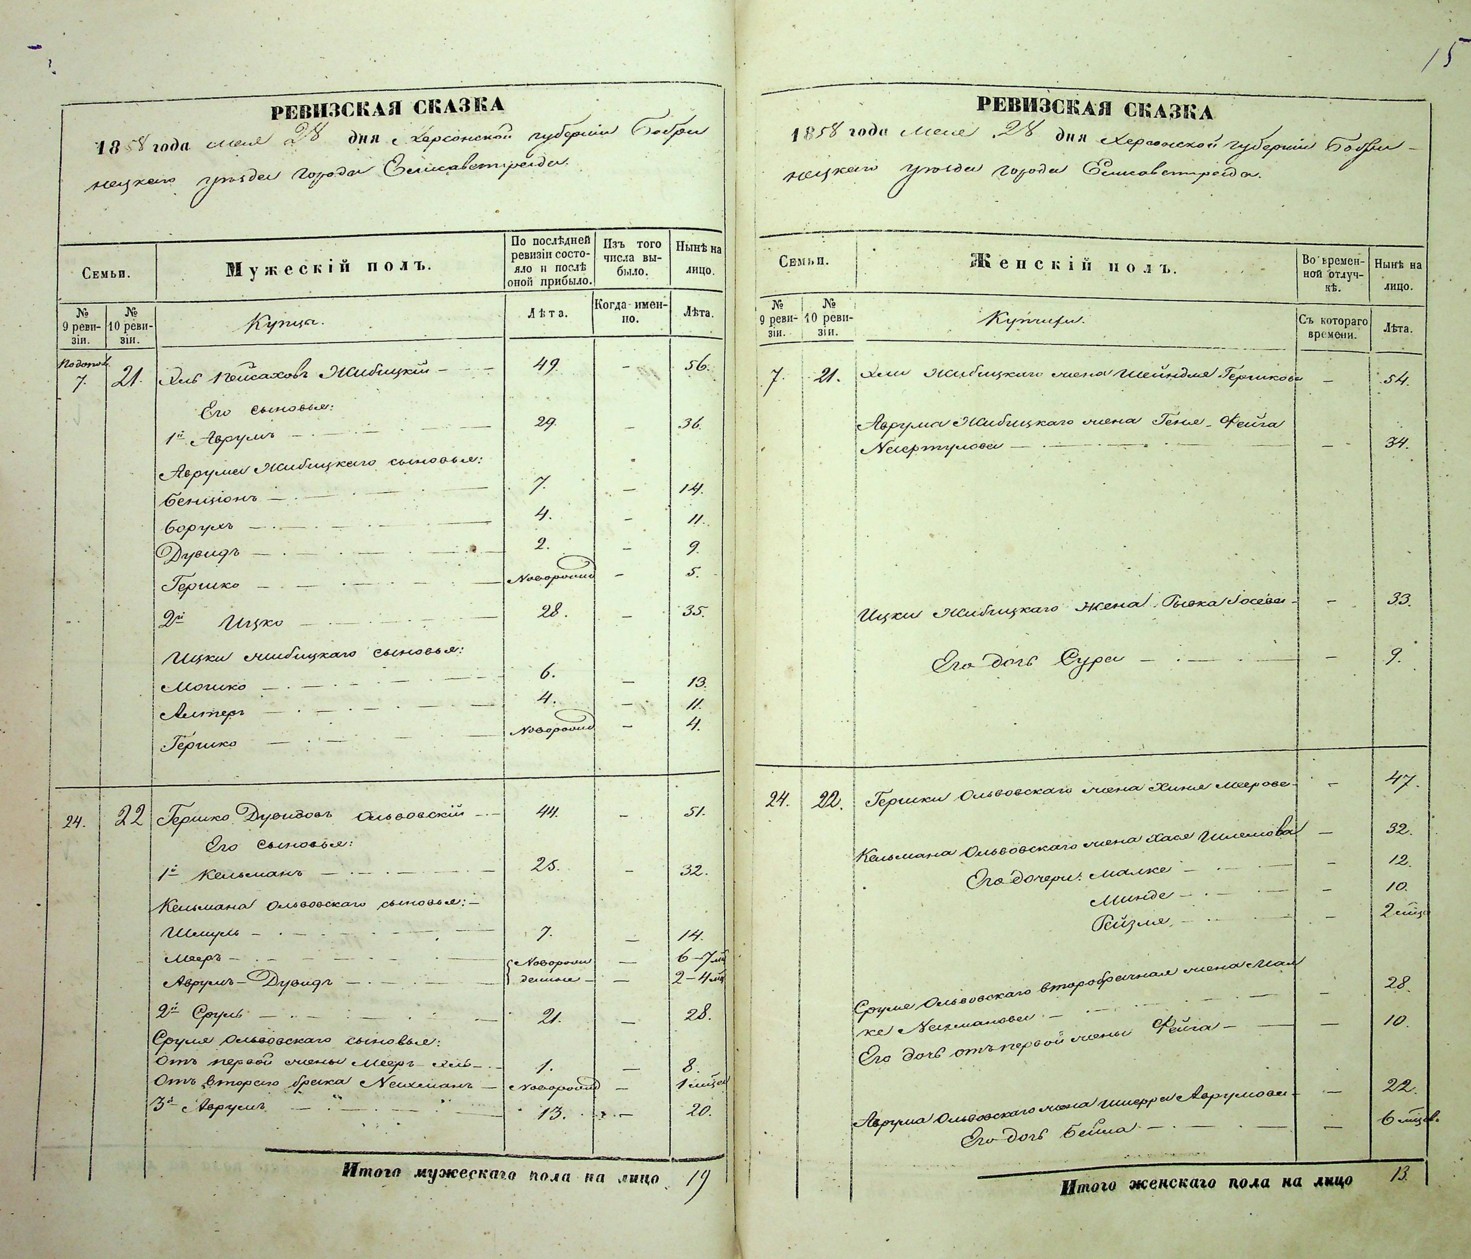 15
РЕВИЗСКАЯ СКАЗКА
1858 года мая 28 дня Херсонской губерніи Бобри
нецкаго уѣзда города Елисаветграда.
Семьи.
Мужескій полъ.
По послѣдней ревизіи состояло и послѣ оной прибыло.
Изъ того числа выбыло.
Нынѣ на лицо.
№ 9 ревизіи.
№ 10 ревизіи.
Купцы.
Лѣта.
Когда именно.
Лѣта.
7. 21. Хиль Пейсаховъ Жибицкій — 49. — 56.
Его сыновья:
1й Аврумъ — 29. — 36.
Аврума Жибицкаго сыновья:
Бенціонъ — 7. — 14.
Борухъ — 4. — 11.
Дувидъ — 2. — 9.
Гершко — Новорожд — 5.
2й Ицко — 28. — 35.
Ицки Жибицкаго сыновья:
Мошко — 6. — 13.
Алтеръ — 4. — 11.
Гершко — Новорожд — 4.
24. 22 Гершко Дувидовъ Ольвовскій — 44. — 51.
Его сыновья:
1й Кельманъ — 25. — 32.
Кельмана Ольвовскаго сыновья: —
Шмуль — 7. — 14.
Мееръ — Новорож — 6–7 мѣ
Аврумъ-Дувидъ — денные — 2–4 мц
2й Сруль — 21. — 28.
Сруля Ольвовскаго сыновья:
Отъ первой жены Мееръ-Хиль — 1. — 8.
Отъ втораго брака Нехеманъ — Новорожд — 1 мѣсяц
3й Аврумъ — 13. — 20.
Итого мужескаго пола на лицо 19
РЕВИЗСКАЯ СКАЗКА
1858 года мая 28 дня Херсонской губерніи Бобри-
нецкаго уѣзда города Елисаветграда.
Семьи.
Женскій полъ.
Во временной отлучкѣ.
Нынѣ на лицо.
№ 9 ревизіи.
№ 10 ревизіи.
Купчихи.
Съ котораго времени.
Лѣта.
7. 21. Хили Жибицкаго жена Шейндля Гершкова — 54.
Аврума Жибицкаго жена Геня-Фейга
— 34.
Ицки Жибицкаго жена Рывка Іосева — 33.
Его дочь Сура — 9.
24. 22. Гершки Ольвовскаго жена Хиня Меерова — 47.
Кельмана Ольвовскаго жена Хася Шлемова — 32.
Его дочери: Малке — 12.
Минде — 10.
Рейзля — 2 мѣся
Сруля Ольвовскаго второбрачная жена Мал
ке Нехманова — 28.
Его дочь отъ первой жены Фейга — 10.
Аврума Ольвовскаго жена Шперра Аврумова — 22.
Его дочь Бейла — 6 мѣсяв.
Итого женскаго пола на лицо 13.